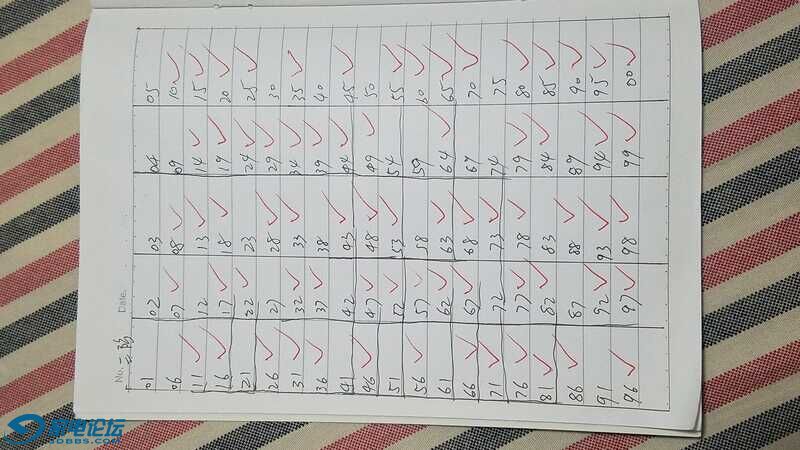 No. Date.
01 02 03 04 05
06 07 08 09 10
11 12 13 14 15
16 17 18 19 20
21 22 23 24 25
26 27 28 29 30
31 32 33 34 35
36 37 38 39 40
41 42 43 44 45
46 47 48 49 50
51 52 53 54 55
56 57 58 59 60
61 62 63 64 65
66 67 68 69 70
71 72 73 74 75
76 77 78 79 80
81 82 83 84 85
86 87 88 89 90
91 92 93 94 95
96 97 98 99 00
电论坛